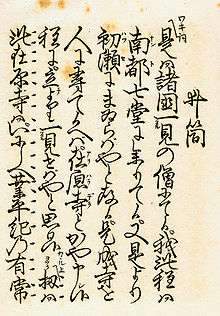 井筒
ワキ詞
是は諸國一見の僧にて候我此程は
南都七堂に参りて候又是より
初瀬にまゐらばやと存候是成寺を
人に尋て候へば在原寺とかや申候
程に立より一見せばやと思ひ候 扨は
此在原寺はいにしへ業平紀の有常